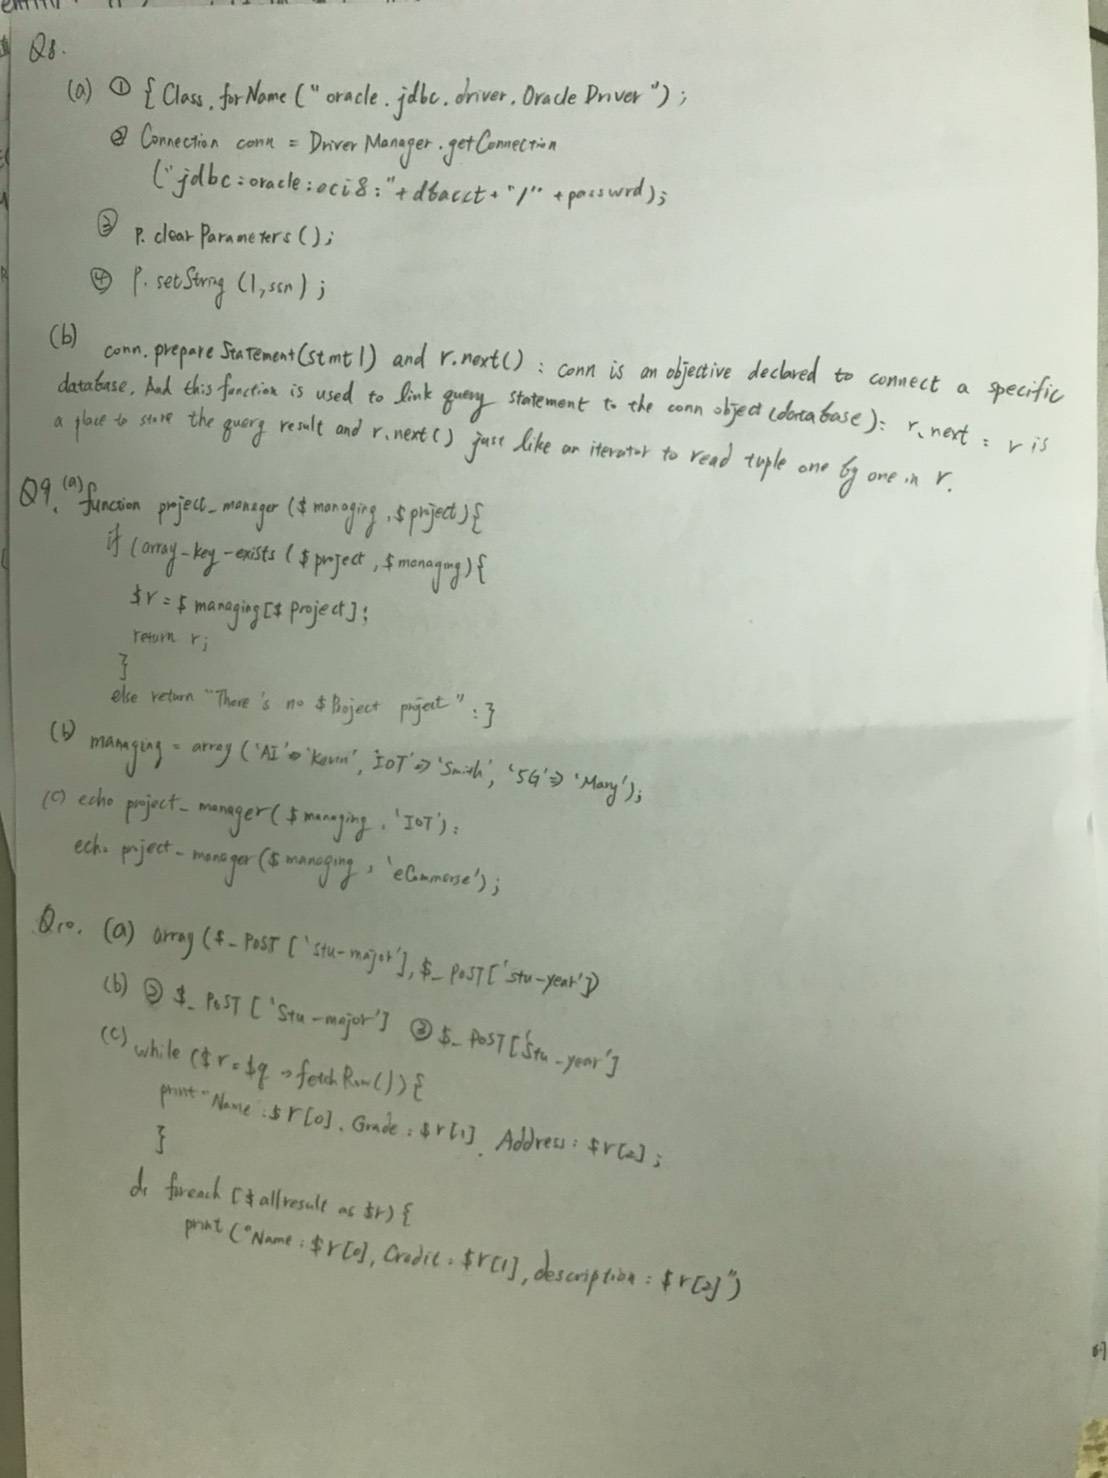 Q8.
(a) ① { Class.forName ("oracle.jdbc.driver.OracleDriver");
② Connection conn = DriverManager.getConnection
("jdbc:oracle:oci8:"+dbacct+"/"+passwrd);
③ p.clearParameters();
④ p.setString (1,ssn);
(b) conn.prepareStatement(stmt1) and r.next() : conn is an objective declared to connect a specific
database. And this function is used to link query statement to the conn object (database): r.next : r is
a place to store the query result and r.next() just like an iterator to read tuple one by one in r.
Q9. (a) function project_manager ($managing,$project){
if (array-key-exists ($project,$managing){
$r = $managing[$project];
return r;
}
else return "There's no $Project project";}
(b) managing = array ('AI'=>'Kevin', 'IoT'=>'Smith', '5G'=>'Mary');
(c) echo project_manager($managing, 'IoT');
echo project_manager($managing, 'eCommerse');
Q10. (a) array ($_POST ['stu-major'], $_POST['stu-year'])
(b) ② $_POST ['Stu-major'] ③ $_POST['Stu-year']
(c) while ($r = $q->fetchRow()){
print "Name:$r[0]. Grade:$r[1]. Address:$r[2];
}
d. foreach [$allresult as $r){
print ("Name:$r[0], Credit:$r[1], description:$r[2]")